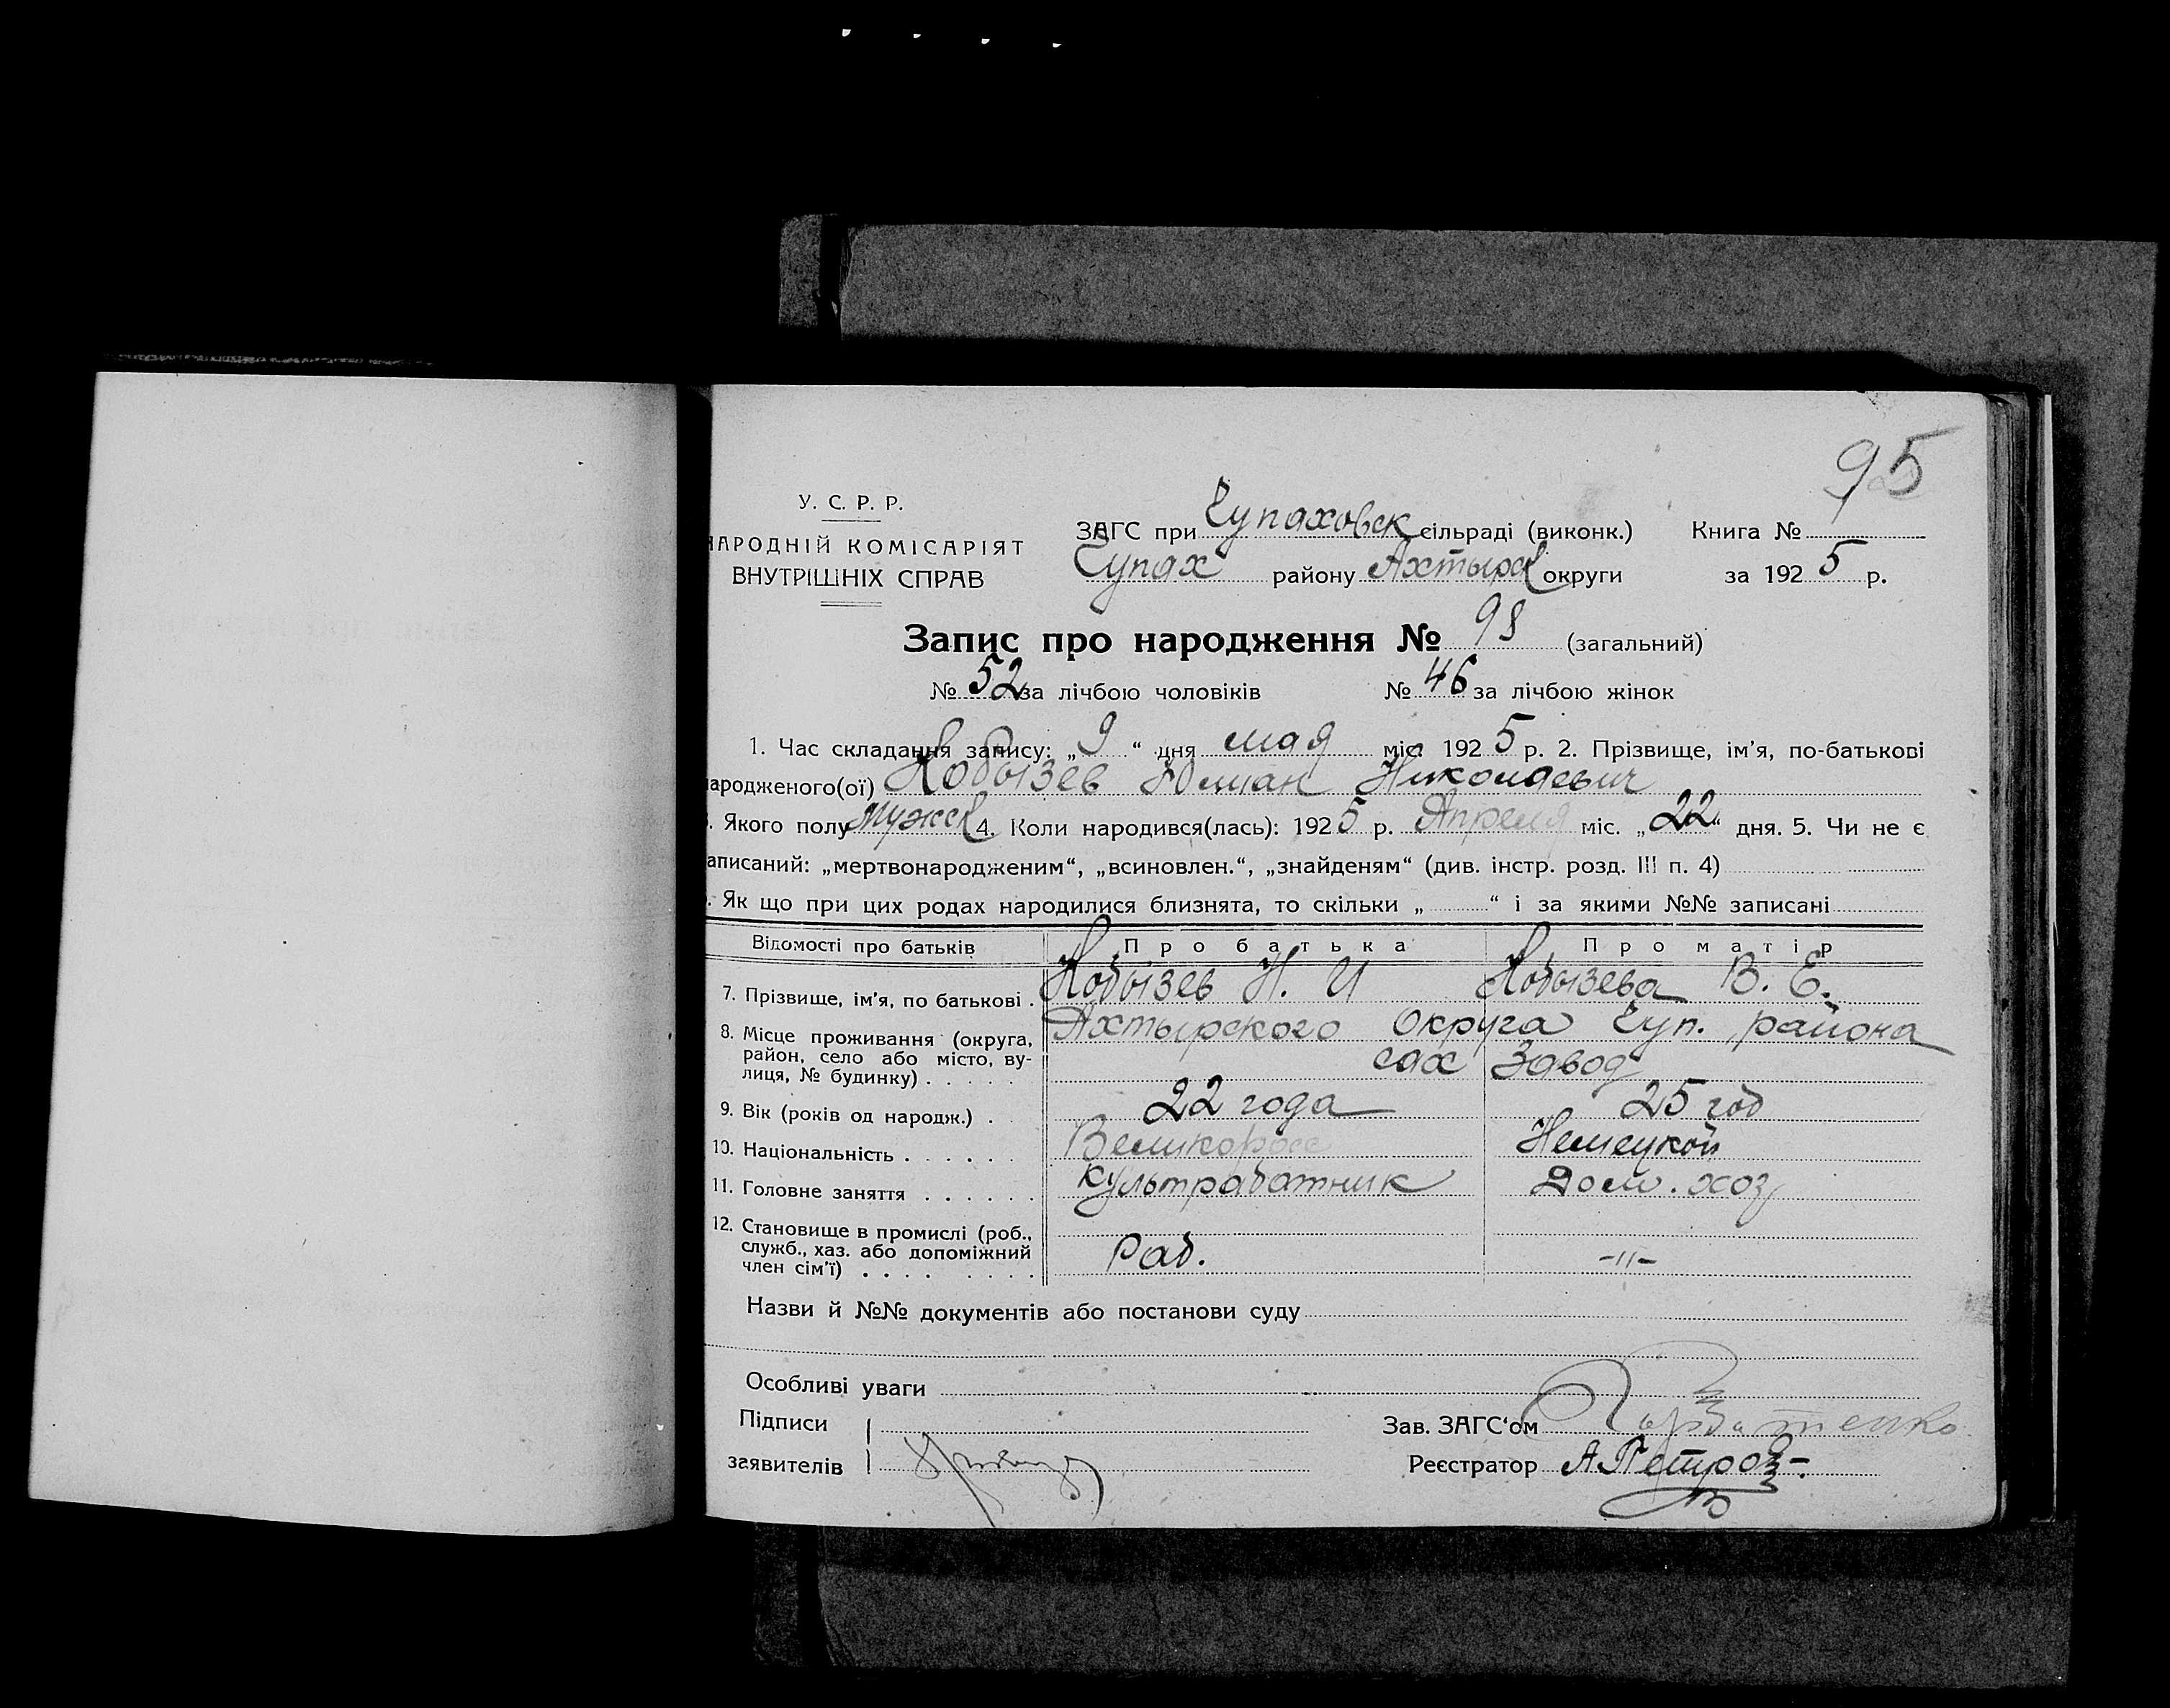 95
У. С. Р. Р.
НАРОДНІЙ КОМІСАРІЯТ
ВНУТРІШНІХ СПРАВ
ЗАГС при Чупаховск сільраді (виконк.) Книга №
Чупах району Ахтырск округи за 1925 р.
Запис про народження № 98 (загальний)
№ 52 за лічбою чоловіків № 46 за лічбою жінок
1. Час складання запису: „9“ дня мая міс. 1925 р. 2. Прізвище, ім'я, по-батькові
ародженого(ої) Кобызев Николаевич
. Якого полу Мужск 4. Коли народився(лась): 1925 р. Апреля міс. „22“ дня. 5. Чи не є
аписаний: „мертвонародженим“, „всиновлен.“, „знайденям“ (див. інстр. розд. III п. 4)
. Як що при цих родах народилися близнята, то скільки „ “ і за якими №№ записані
Відомості про батьків Про батька Про матір
7. Прізвище, ім'я, по батькові . Кобызев Н. И Кобызева В. Е.
8. Місце проживання (округа, район, село або місто, вулиця, № будинку) . . . . . Ахтырского Округа Чуп. района
сах Завод
9. Вік (років од народж.) . 22 года 25 год
10. Національність . . . . . . Великоросс Немецкой
11. Головне заняття . . . . . . культработник Дом. хоз
12. Становище в промислі (роб., служб., хаз. або допоміжний член сім'ї) . . . . . . . . Раб. -"-
Назви й №№ документів або постанови суду
Особливі уваги
Підписи
Зав. ЗАГС'ом
заявителів
Реєстратор А Петров